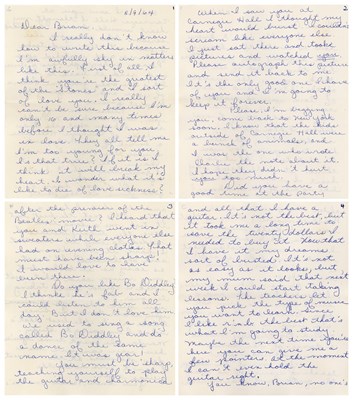 1
8/8/64
Dear Brian,
I really don't know
how to write this because
I'm awfully shy on matters
like this. First of all I
think you're the greatest
of the Stones and I sort
of love you. I really
can't be sure because I'm
only 12 and many times
before I thought I was
in love. They all tell me
I'm too young for you.
Is that true? If it is I
think it will break my
heart. I wonder what it's
like to die of love sickness?
2
When I saw you at
Carnegie Hall I thought my
heart would burst. I couldn't
scream like everyone else
I just sat there and took
pictures and watched you.
Please autograph this picture
and send it back to me.
It's the only good one I have
of you and I'm going to
keep it forever.
Brian I'm begging
you, come back to New York
soon. I know that the kids
outside of Carnegie Hall were
a bunch of animals, and
I was the one who
the note about it.
I hope they didn't hurt
you too much.
Did you have a
good time at the party
3
after the premier of the
Beatles' movie? I heard that
you and Keith went in
sweaters while everyone else
had on evening clothes. That
must have been sharp!
I would love to have
been there.
Do you like Bo Diddley?
I think he's fab and I
could listen to him all
day. But I don't love him.
We used to sing a song
called Bo Diddley and do
a dance of the same
name. It was gear!
You must be sharp,
teaching yourself to play
the guitar and harmonica
4
and all that. I have a
guitar. It's not the best, but
it took me a long time to
save the twenty dollars I
needed to buy it. Now that
I have it my dreams
sort of busted. It's not
as easy as it looks, but
my mum said that next
week I could start taking
lessons. The teachers let
you pick the type of music
you want to learn. Since
I like R and B the best that's
what I'm going to study.
Maybe the next time you're
here you can give me a
few pointers. At the moment
I can't even hold the
guitar right.
You know, Brian, no one's